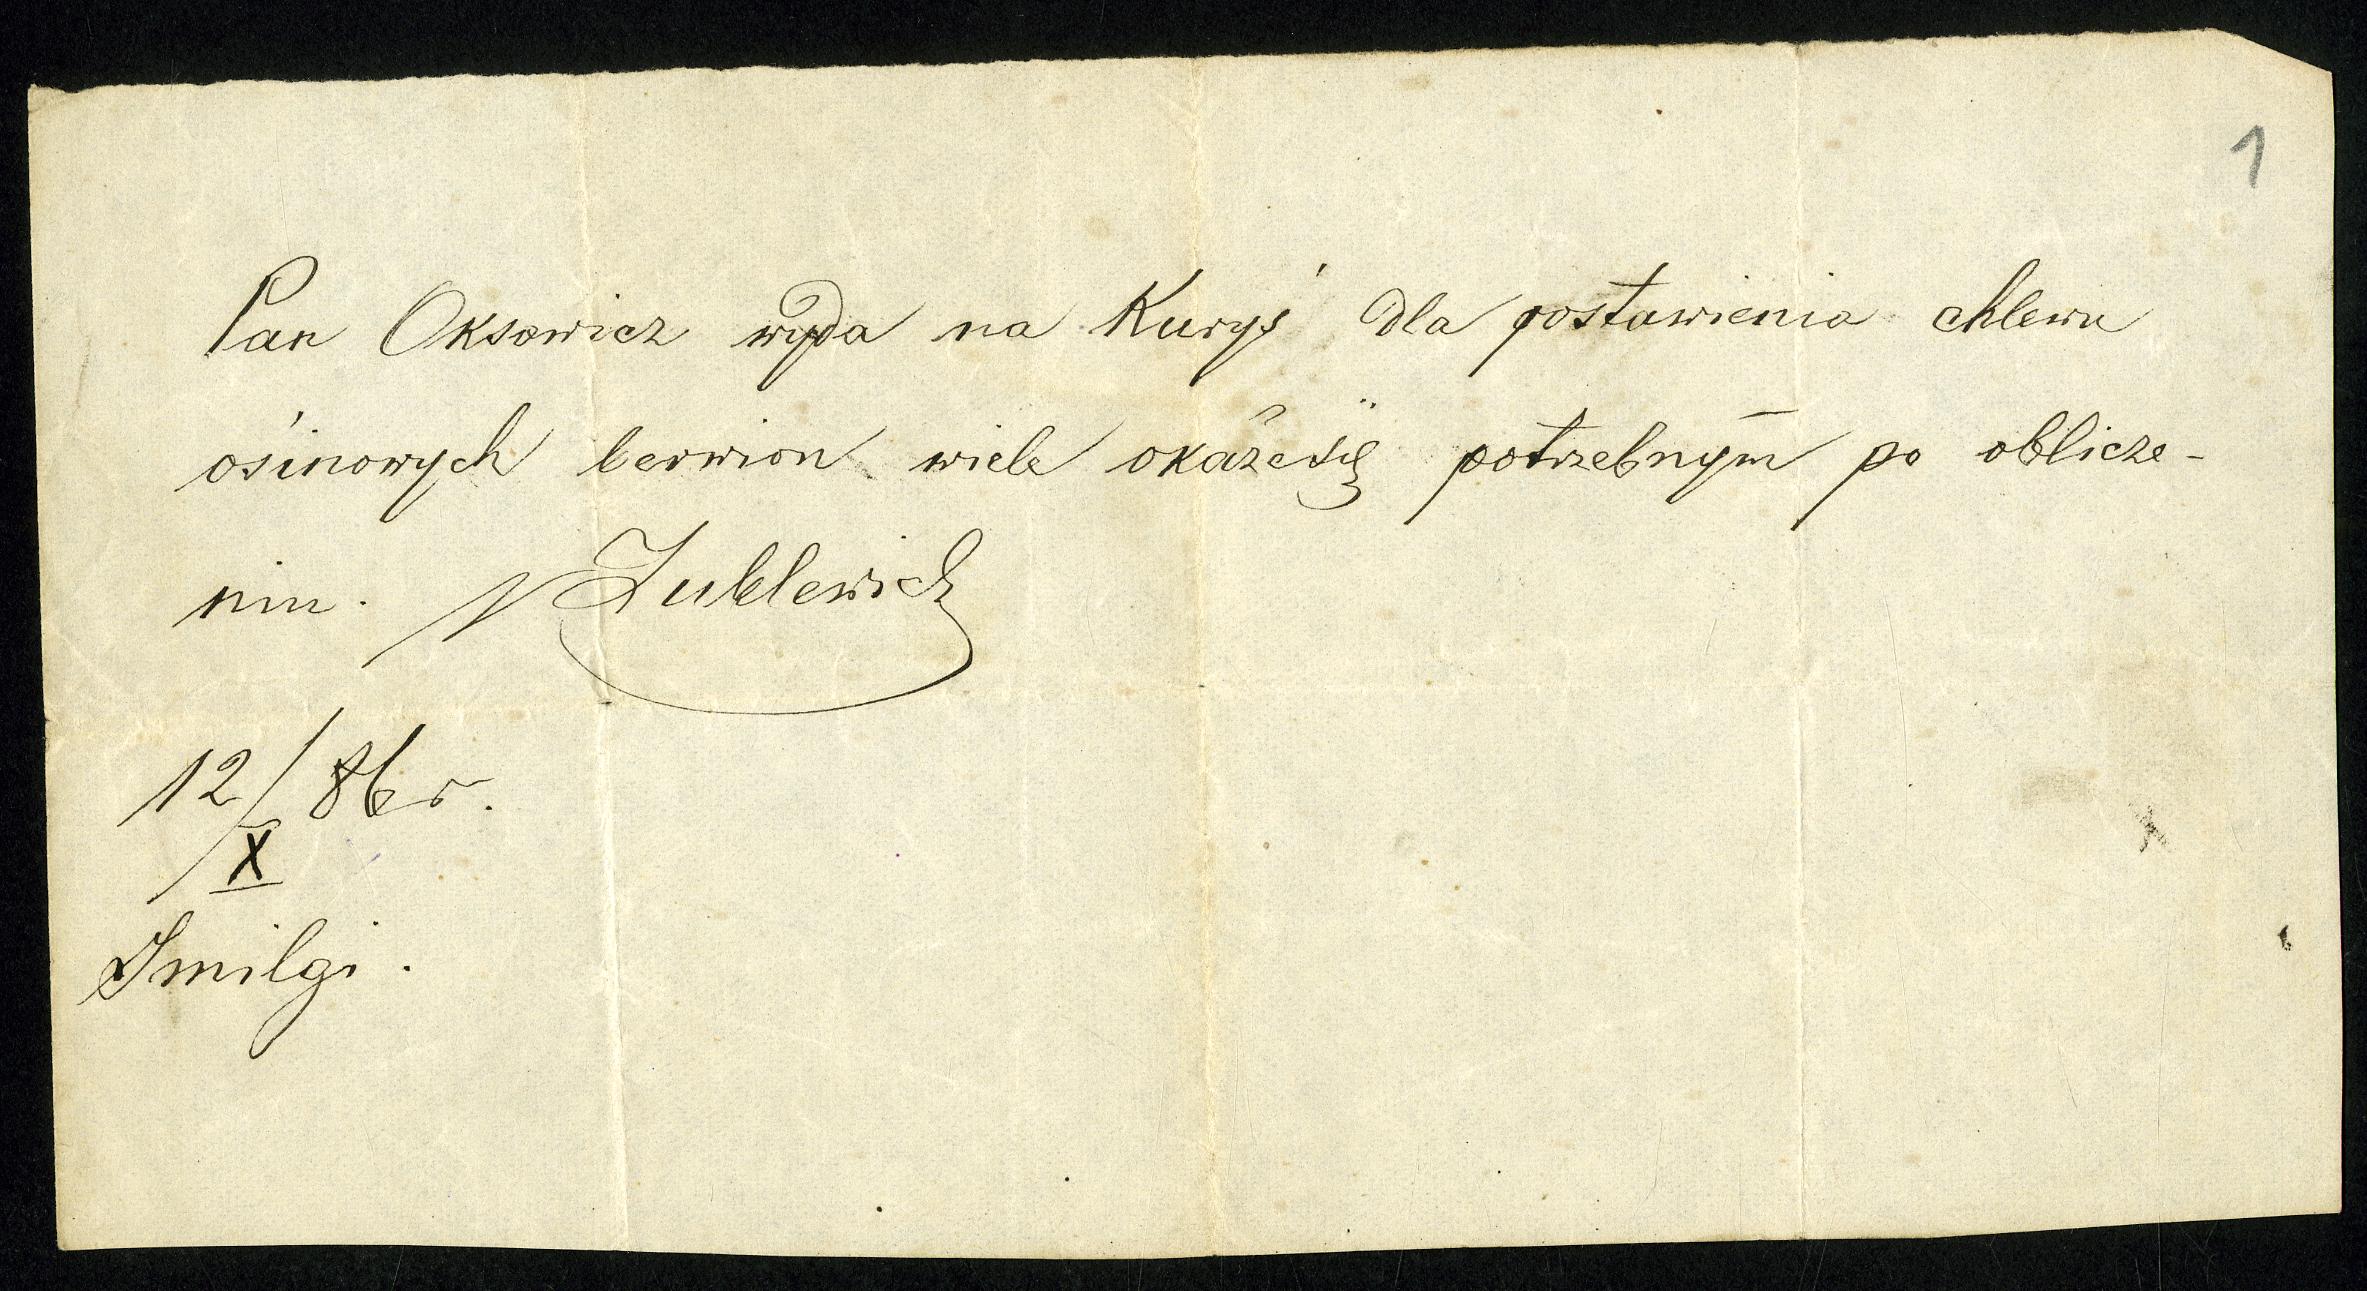 1
Pan Oksowicz wyda na Kuryś dla postawienia chlewu
osinowych berwion wiele okaże się potrzebnym po oblicze-
niu. Zublewicz
12/X 86 r.
Smilgi.